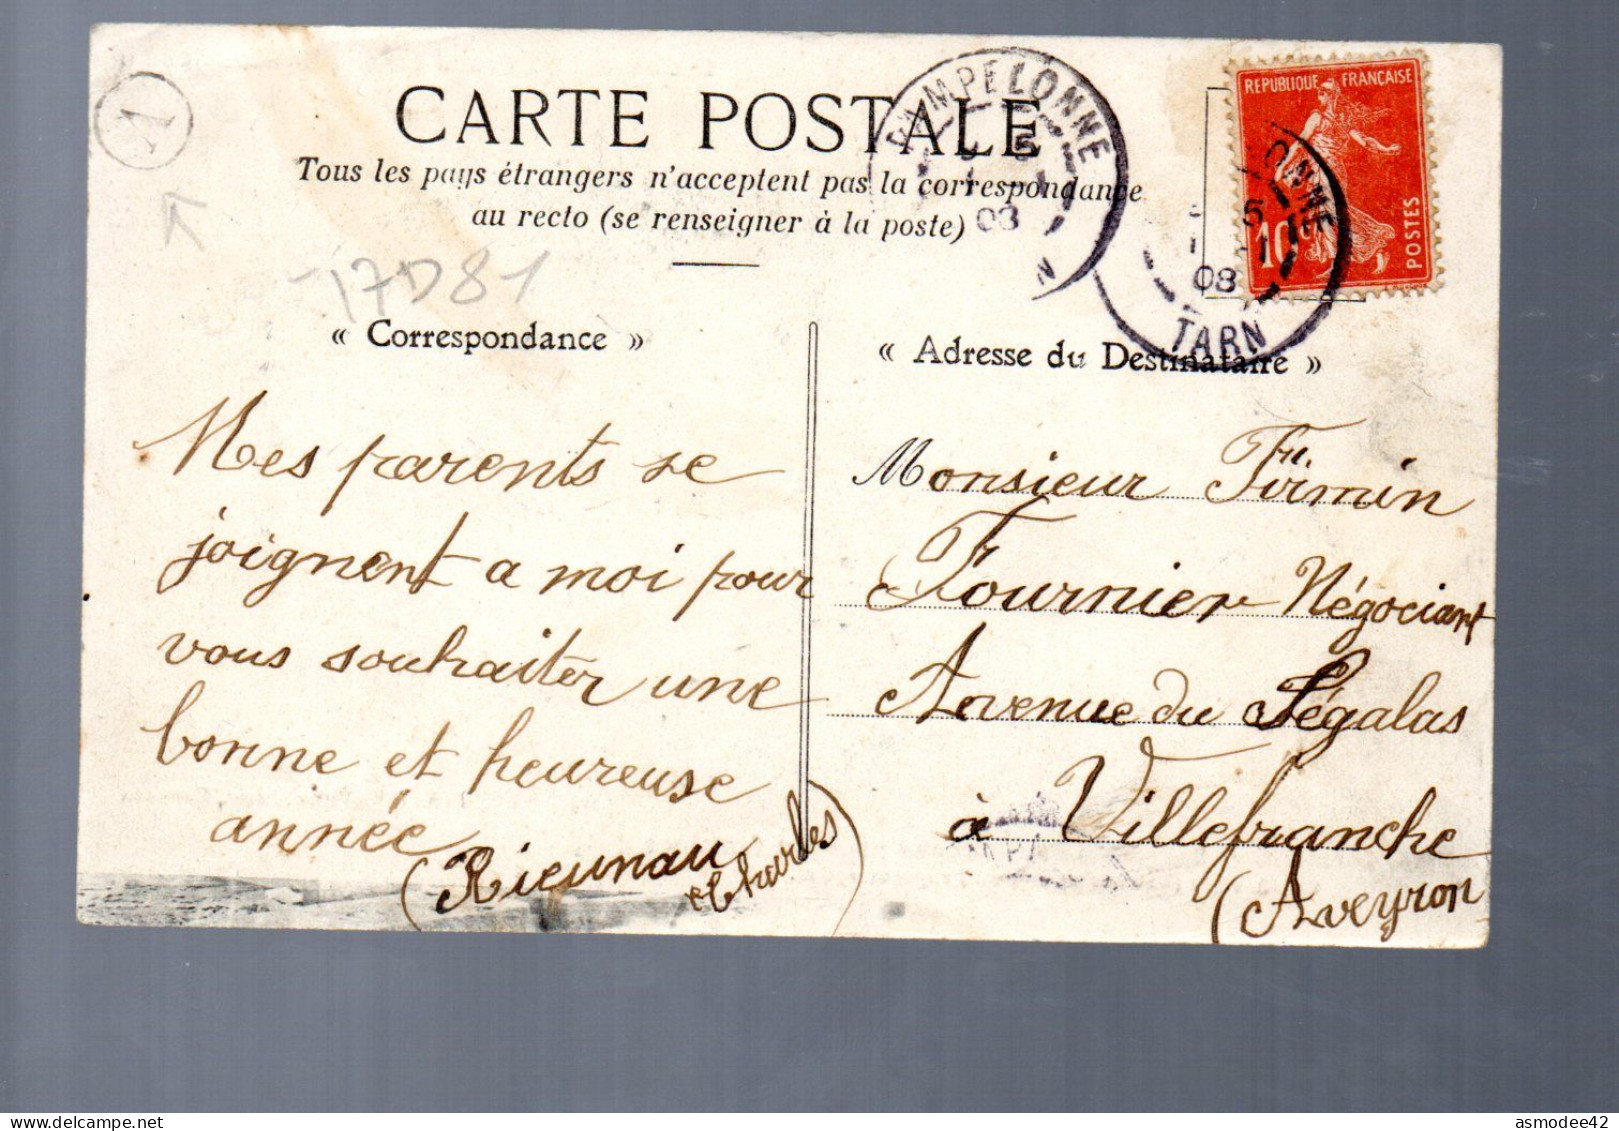 A
CARTE POSTALE
Tous les pays étrangers n'acceptent pas la correspondance
au recto (se renseigner à la poste)
17D81
PAMPELONNE
5
1
08
REPUBLIQUE FRANÇAISE
10c
POSTES
ONNE
5
1
08
TARN
« Correspondance »
Mes parents se
joignent a moi pour
vous souhaiter une
bonne et heureuse
année
(Rieunau
Charles)
« Adresse du Destinataire »
Monsieur Firmin
Fournier Négociant
Avenue du Ségalas
à Villefranche
(Aveyron
asmodee42